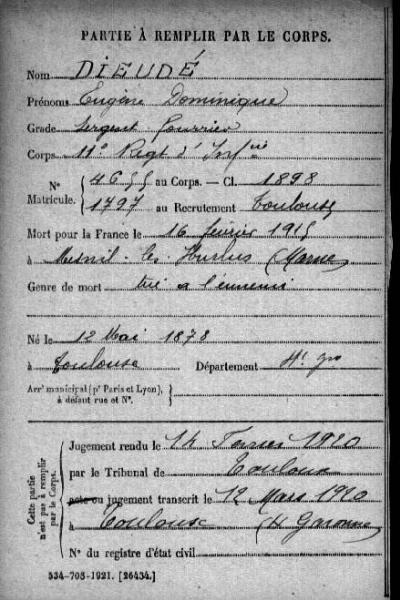 PARTIE À REMPLIR PAR LE CORPS.
Nom DIEUDÉ
Prénoms Eugène Dominique
Grade Sergent Fourrier
Corps 11e Régt d'Infrie
N° Matricule. { 4655 au Corps. — Cl. 1898
1797 au Recrutement Toulouse
Mort pour la France le 16 février 1915
à Mesnil-les-Hurlus (Marne)
Genre de mort tué à l'ennemi
Né le 12 Mai 1878
à Toulouse Département Hte Gne
Arrt municipal (pr Paris et Lyon), à défaut rue et N°. }
Cette partie n'est pas à remplir par le Corps.
Jugement rendu le 14 Février 1920
par le Tribunal de Toulouse
acte ou jugement transcrit le 12 Mars 1920
à Toulouse (H Garonne)
N° du registre d'état civil
534-708-1921. [26434.]